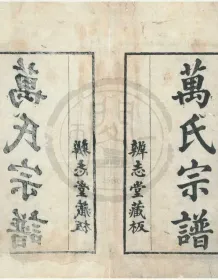 萬氏宗譜
辨志堂藏板
辨志堂藏板
萬氏宗譜